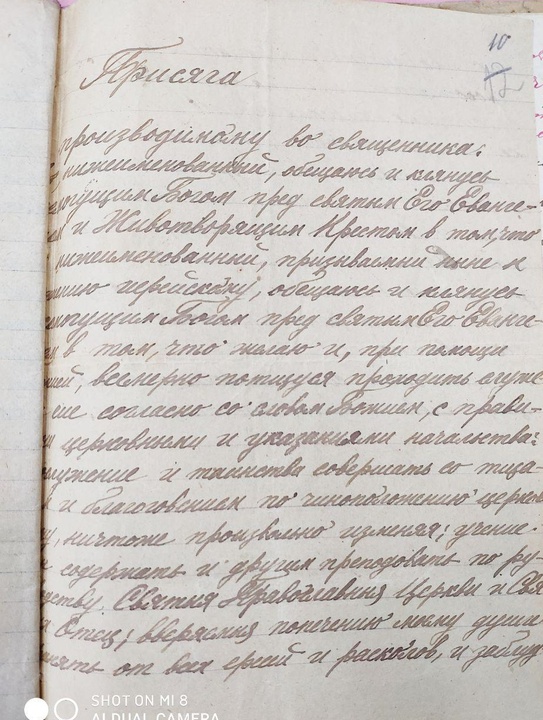 10
12
Присяга
производимому во священника.
нижеименованный, обещаюсь и клянусь
Богом пред святым Его Еванге-
и Животворящим Крестом в том, что
нижеименованный, призываемый ныне к
иерейскому, обещаюсь и клянусь
Богом пред святым Его Еванге-
в том, что желаю и, при помощи
всемерно потщуся проходить служе-
ние согласно со словом Божиим, с прави-
церковными и указаниями начальства:
и таинства совершать со тща-
и благоговением по чиноположению церков
ничтоже произвольно изменяя; учение
содержать и другим преподовать по ру-
Святыя Православныя Церкви и Свя
Отец; вверяемыя попечению моему души
от всех ересей и расколов, и заблуд
SHOT ON MI 8
AI DUAL CAMERA